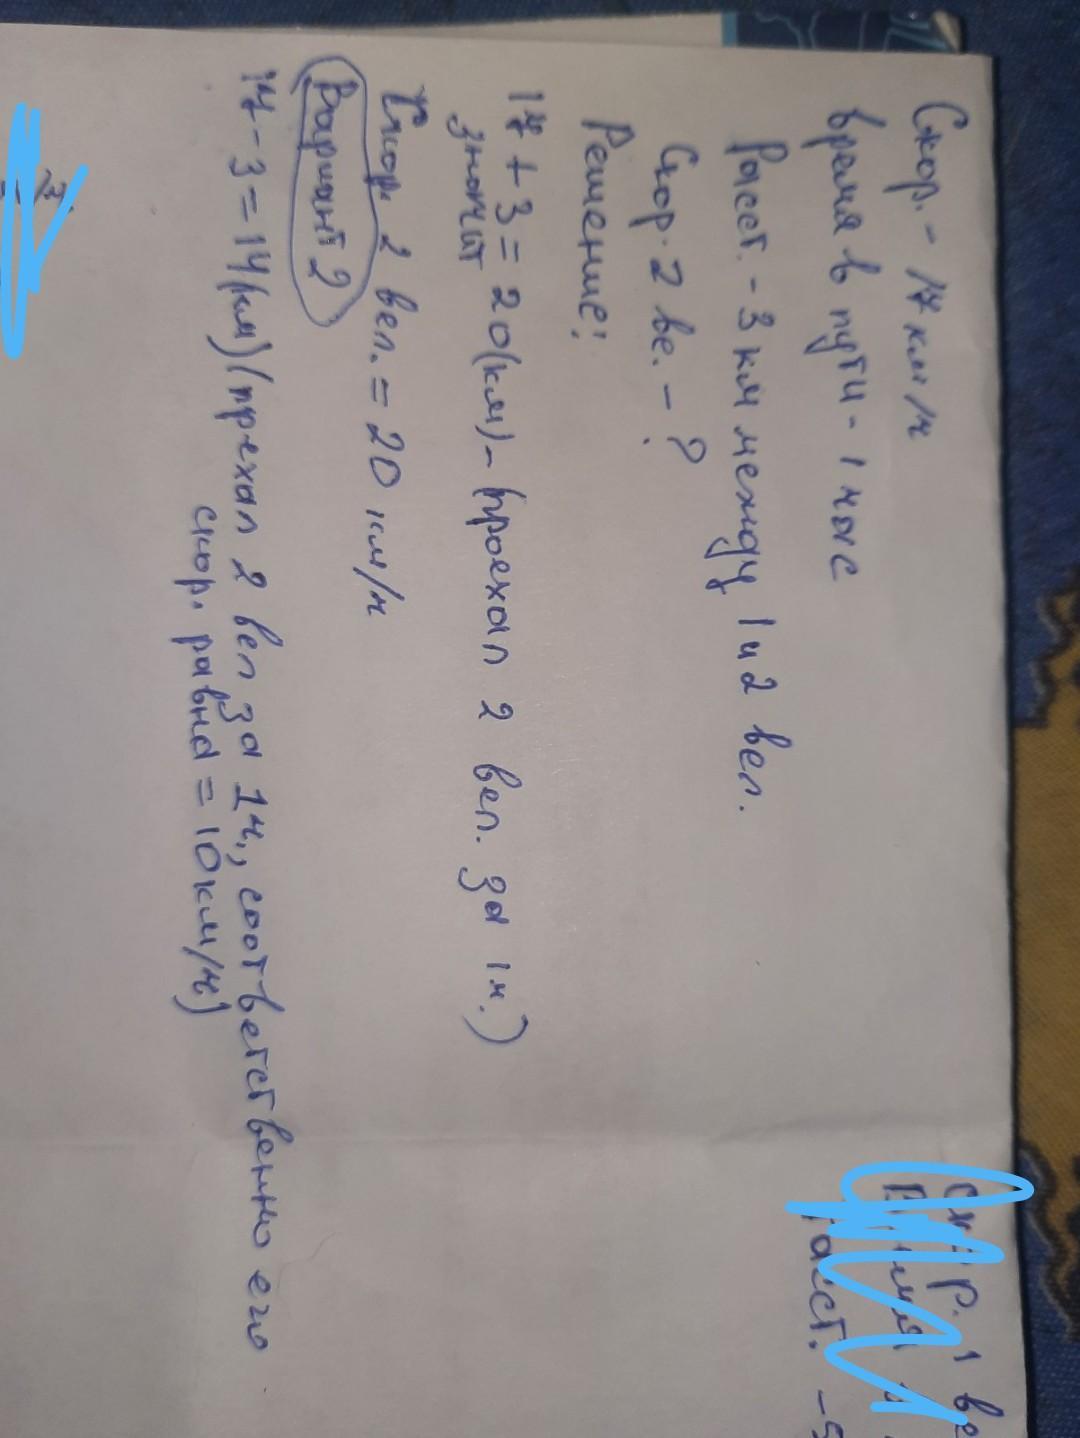 Скор. - 17 км/ч
время в пути - 1 час
Расст. - 3 км между 1 и 2 вел.
Скор. 2 ве. - ?
Решение:
17 + 3 = 20(км) - (проехал 2 вел. за 1ч.)
значит
Скор. 2 вел. = 20 км/ч
Вариант 2
17 - 3 = 14(км)(прехал 2 вел за 1ч., соответственно его
скор. равна = 10км/ч)
расст. - 5